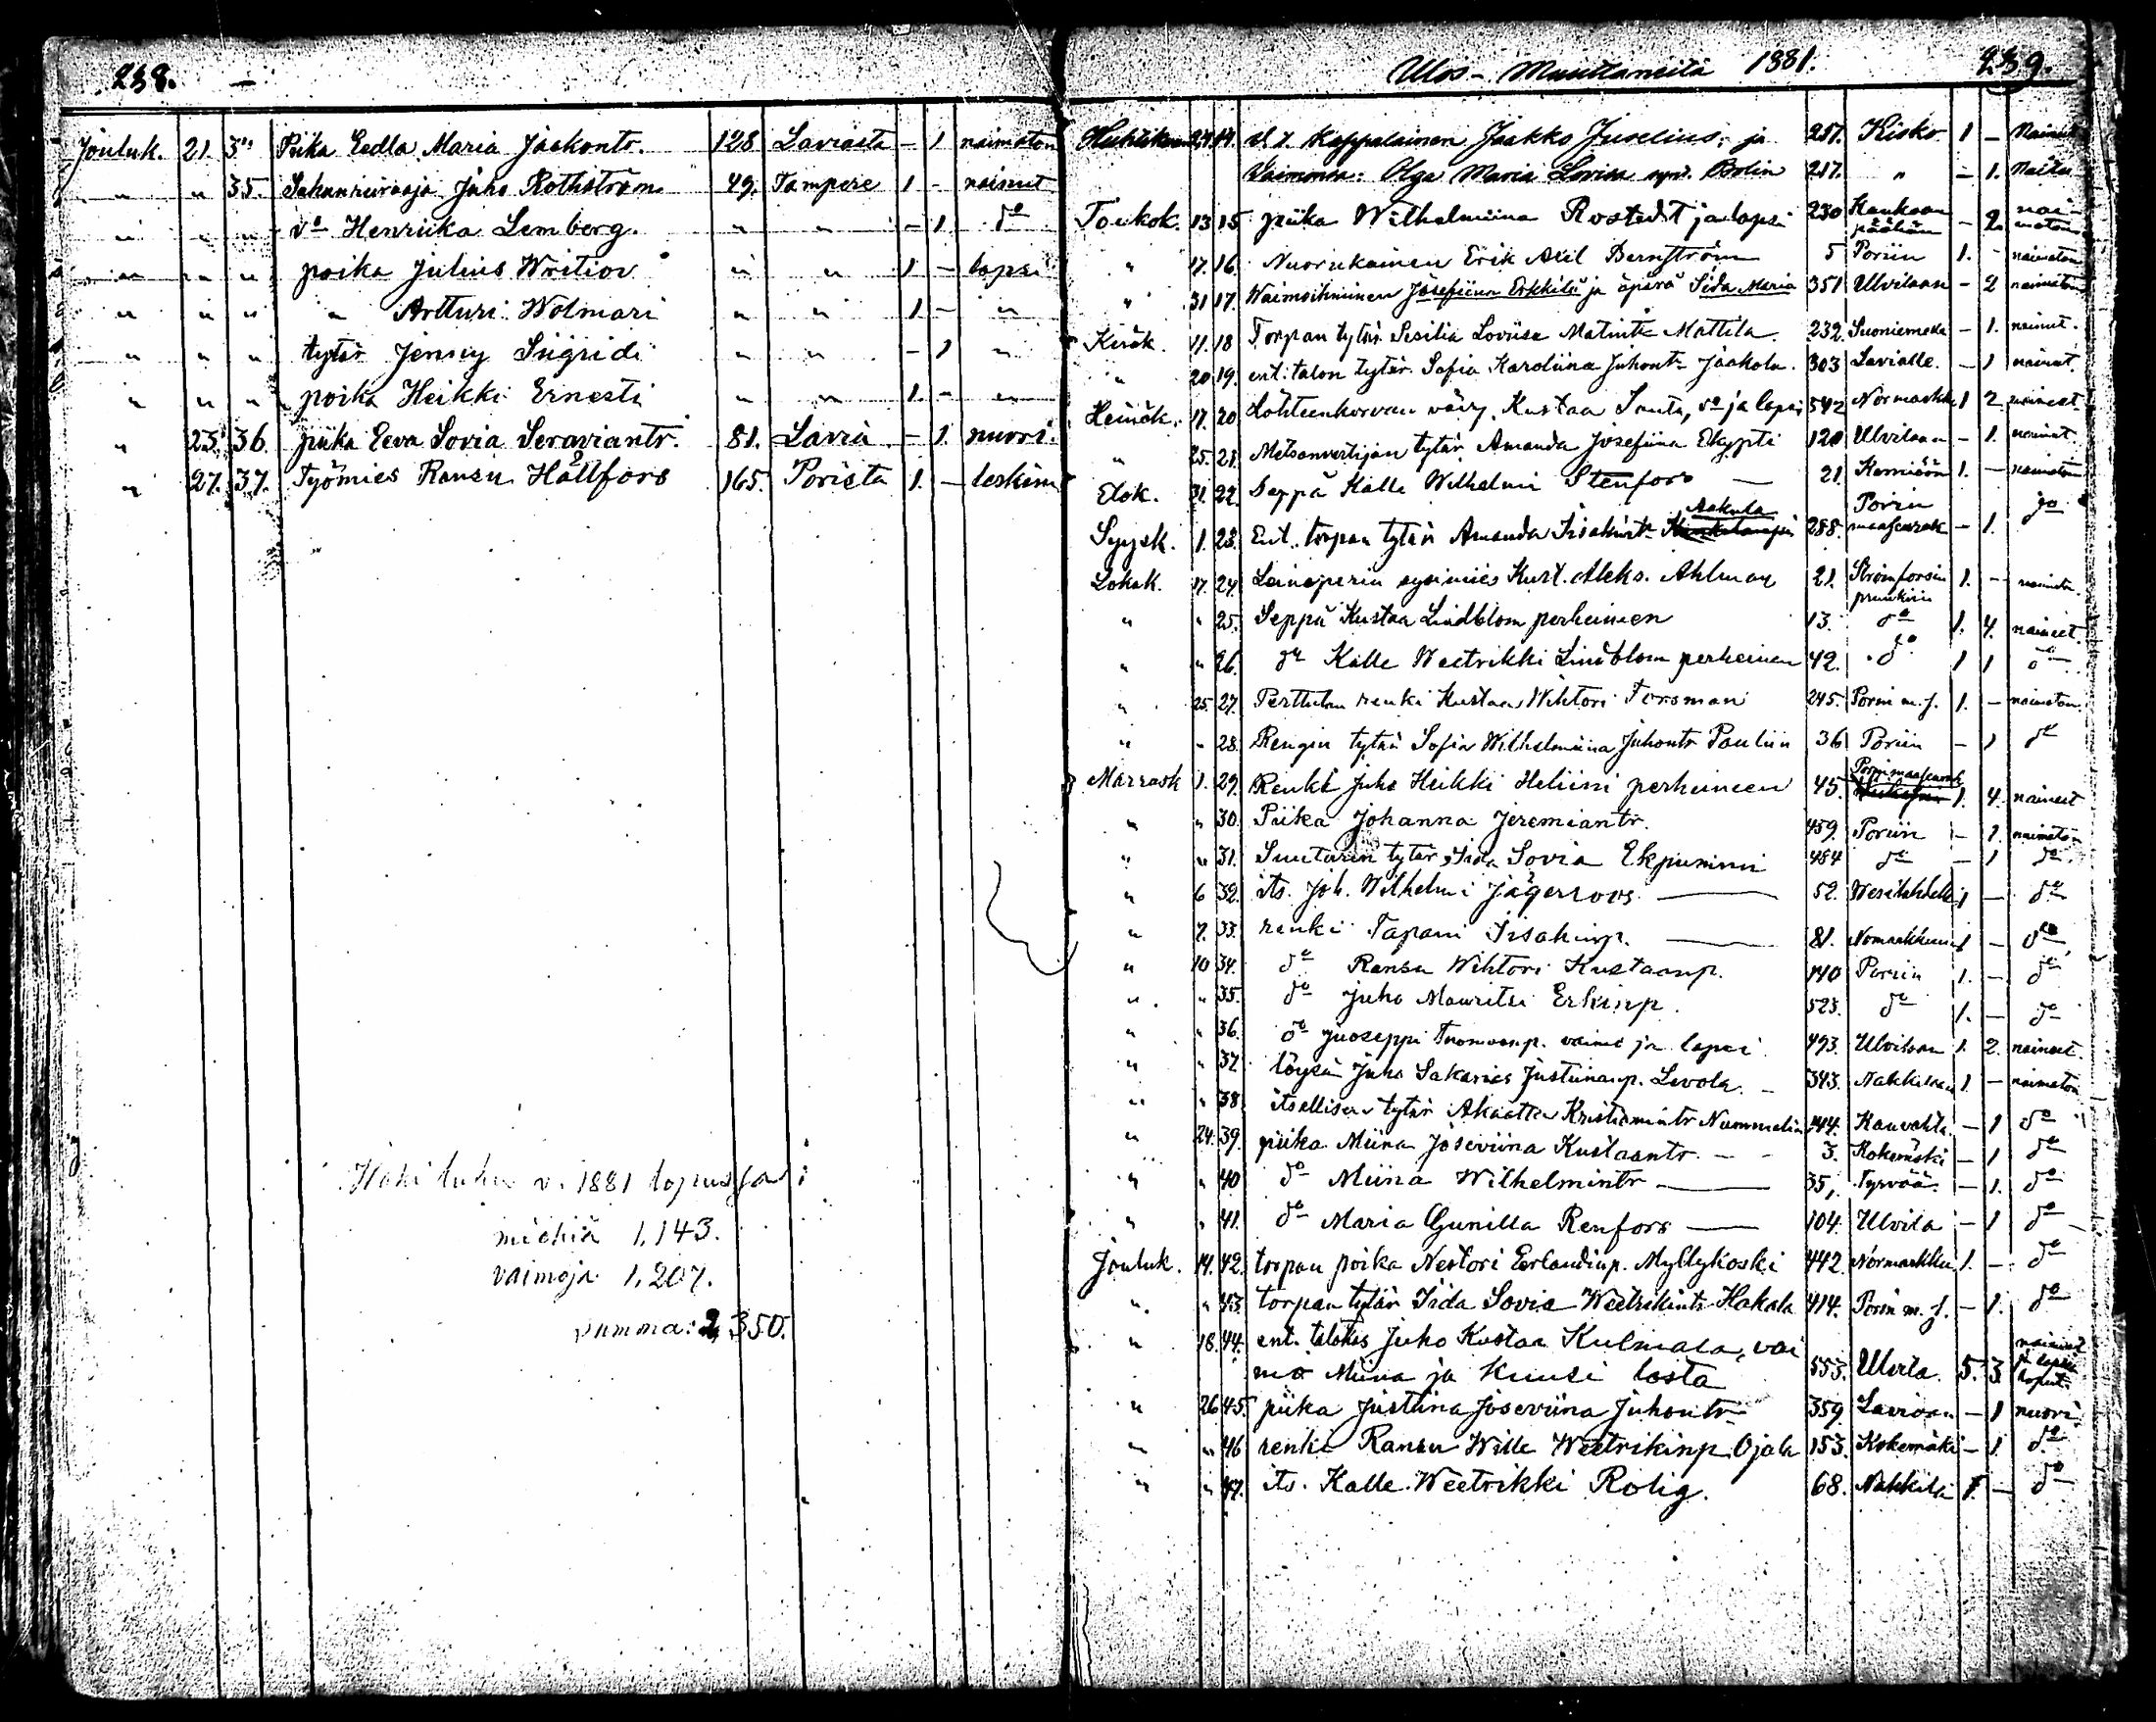 238. -
Jouluk. 21. Piika Eedla Maria Jaakontr. 128 Laviasta - 1 naimaton
" " 35. Sahanhuivaaja Juho Rothström 49. Tampere 1 - nainut
" " " vo Henriika Lemberg. " " - 1 do
" " " poika Julius " " 1 - lapsi
" " " " Artturi Wolmari " " 1 - "
" " " tytär Jenny Siigridi " " - 1 "
" " " poika Heikki Ernesti " " 1. - "
" 23. 36. piika Eeva Sovia Seraviantr. 81. Lavia - 1. nuori.
" 27. 37. Työmies Ransu Hållfors 165. Porista 1. - leskim
v. 1881 lopussa:
miehiä 1,143.
vaimoja 1,207.
summa: 2,350.
Ulos-Muuttaneita 1881. 239.
Huhtikuun 14. Kappalainen Jaakko Juselius, ja 217. Kisko 1 -
Olga Maria Lovisa synt. Bolin 217. " - 1.
Toukok. 13 15 piika Wilhelmiina Rostedt ja lapsi 230 Kankaanpäähän - 2. naimaton
" 17. 16. Nuorukainen Erik Axil Bernström 5 Poriin 1. - naimaton
" 31 17. Waimoihminen Josefiina Erkkilä ja äpärä Iida Maria 351 Ulvilaan - 2 naimaton
Kesäk. 11. 18 Torpan tytär Sesilia Loviisa Matintr. Mattila 232. Suoniemelle - 1. nainut.
" 20 19. ent. talon tytär Sofia Karoliina Juhontr. Jaakola. 303 Lavialle. - 1 nainut.
Heinäk. 17. 20 Lahteenkorvan vävy, Kustaa Santa, vo ja lapsi 542 Normarkku 1 2 naineet
" 25. 21. Metsänvartijan tytär, Amanda Josefiina Ekypti 120 Ulvilaan - 1. nainut.
Elok. 31. 22. Seppä Kalle Wilhelmi Stenfors - 21. 1. - naimaton
Syysk. 1. 23. Ent. torpan tytär Amanda Iisakintr. Aakula 288. Porin maaseurak - 1. do
Lokak. 17. 24. Leineperin sysimies Kust. Aleks. Ahlman 21. Strömforsin pruukiin 1. - naimaton
" " 25. Seppä Kustaa Lindblom perheineen 13. do 1. 4. naineet.
" " 26. do Kalle Weetrikki Lindblom perheineen 42. do 1 1 do
" 25. 27. Perttulan renki Kustaa Wihtori Forsman 245. Porin m. s. 1. - naimaton
" " 28. Rengin tytär Sofia Wilhelmiina Juhontr Pauliin 36 Poriin - 1 do
Marrask 1. 29. Renki Juho Heikki Heliini perheineen 45. Porin maaseurak 1. 4. naineet
" " 30. Piika Johanna Jeremiantr. 459. Poriin - 1. naimaton
" " 31. Suutarin tytär Iida Sovia Ekpummi 484 do - 1 do
" 6 32. its. Joh. Wilhelmi Jägerroos 52. Wesilahdelle 1 - do
" 7. 33. renki Tapani Iisakinp. 81. Nomarkkuun 1 - do
" 10 34. do Ransu Wihtori Kustaanp. 140 Poriin 1. - do
" " 35. do Juho Mauritsi Erkinp. 523. do 1. - do
" " 36. do Juoseppi Tuomaanp. vaimo ja lapsi 493. Ulvilaan 1. 2. naineet.
" " 37 löysä Juho Sakarias Justiinanp. Levola. - 343. Nakkilaan 1. - naimaton
" " 38 itsellisen tytär Akaatta Kristianintr Nummelin 144. Kauvatsa - 1 do
" 24. 39. piika Miina Joseviina Kustaantr. - - 3. Kokemäki - 1 do
" " 40 do Miina Wilhelmintr 35, Tyrvää. - 1. do
" " 41. do Maria Gunilla Renfors 104. Ulvila - 1 do
Jouluk. 14. 42. torpan poika Nestori Eerlandinp. Myllykoski 442. Normarkku 1. - do
" " 43. torpan tytär Iida Sovia Weetrikintr. Hakala 414. Porin m. s. - 1. do
" 18. 44. ent. talokas Juho Kustaa Kulmala, vai
mo Miina ja kuusi lasta 553. Ulvila. 5. 3
" 26 45. piika Justiina Joseviina Juhontr 359 Laviaan - 1 nuori
" " 46 renki Ransu Wille Weetrikinp. Ojala 153. Kokemäki - 1. do
" " 47. its. Kalle Weetrikki Rolig. 68. Nakkila 1. - do